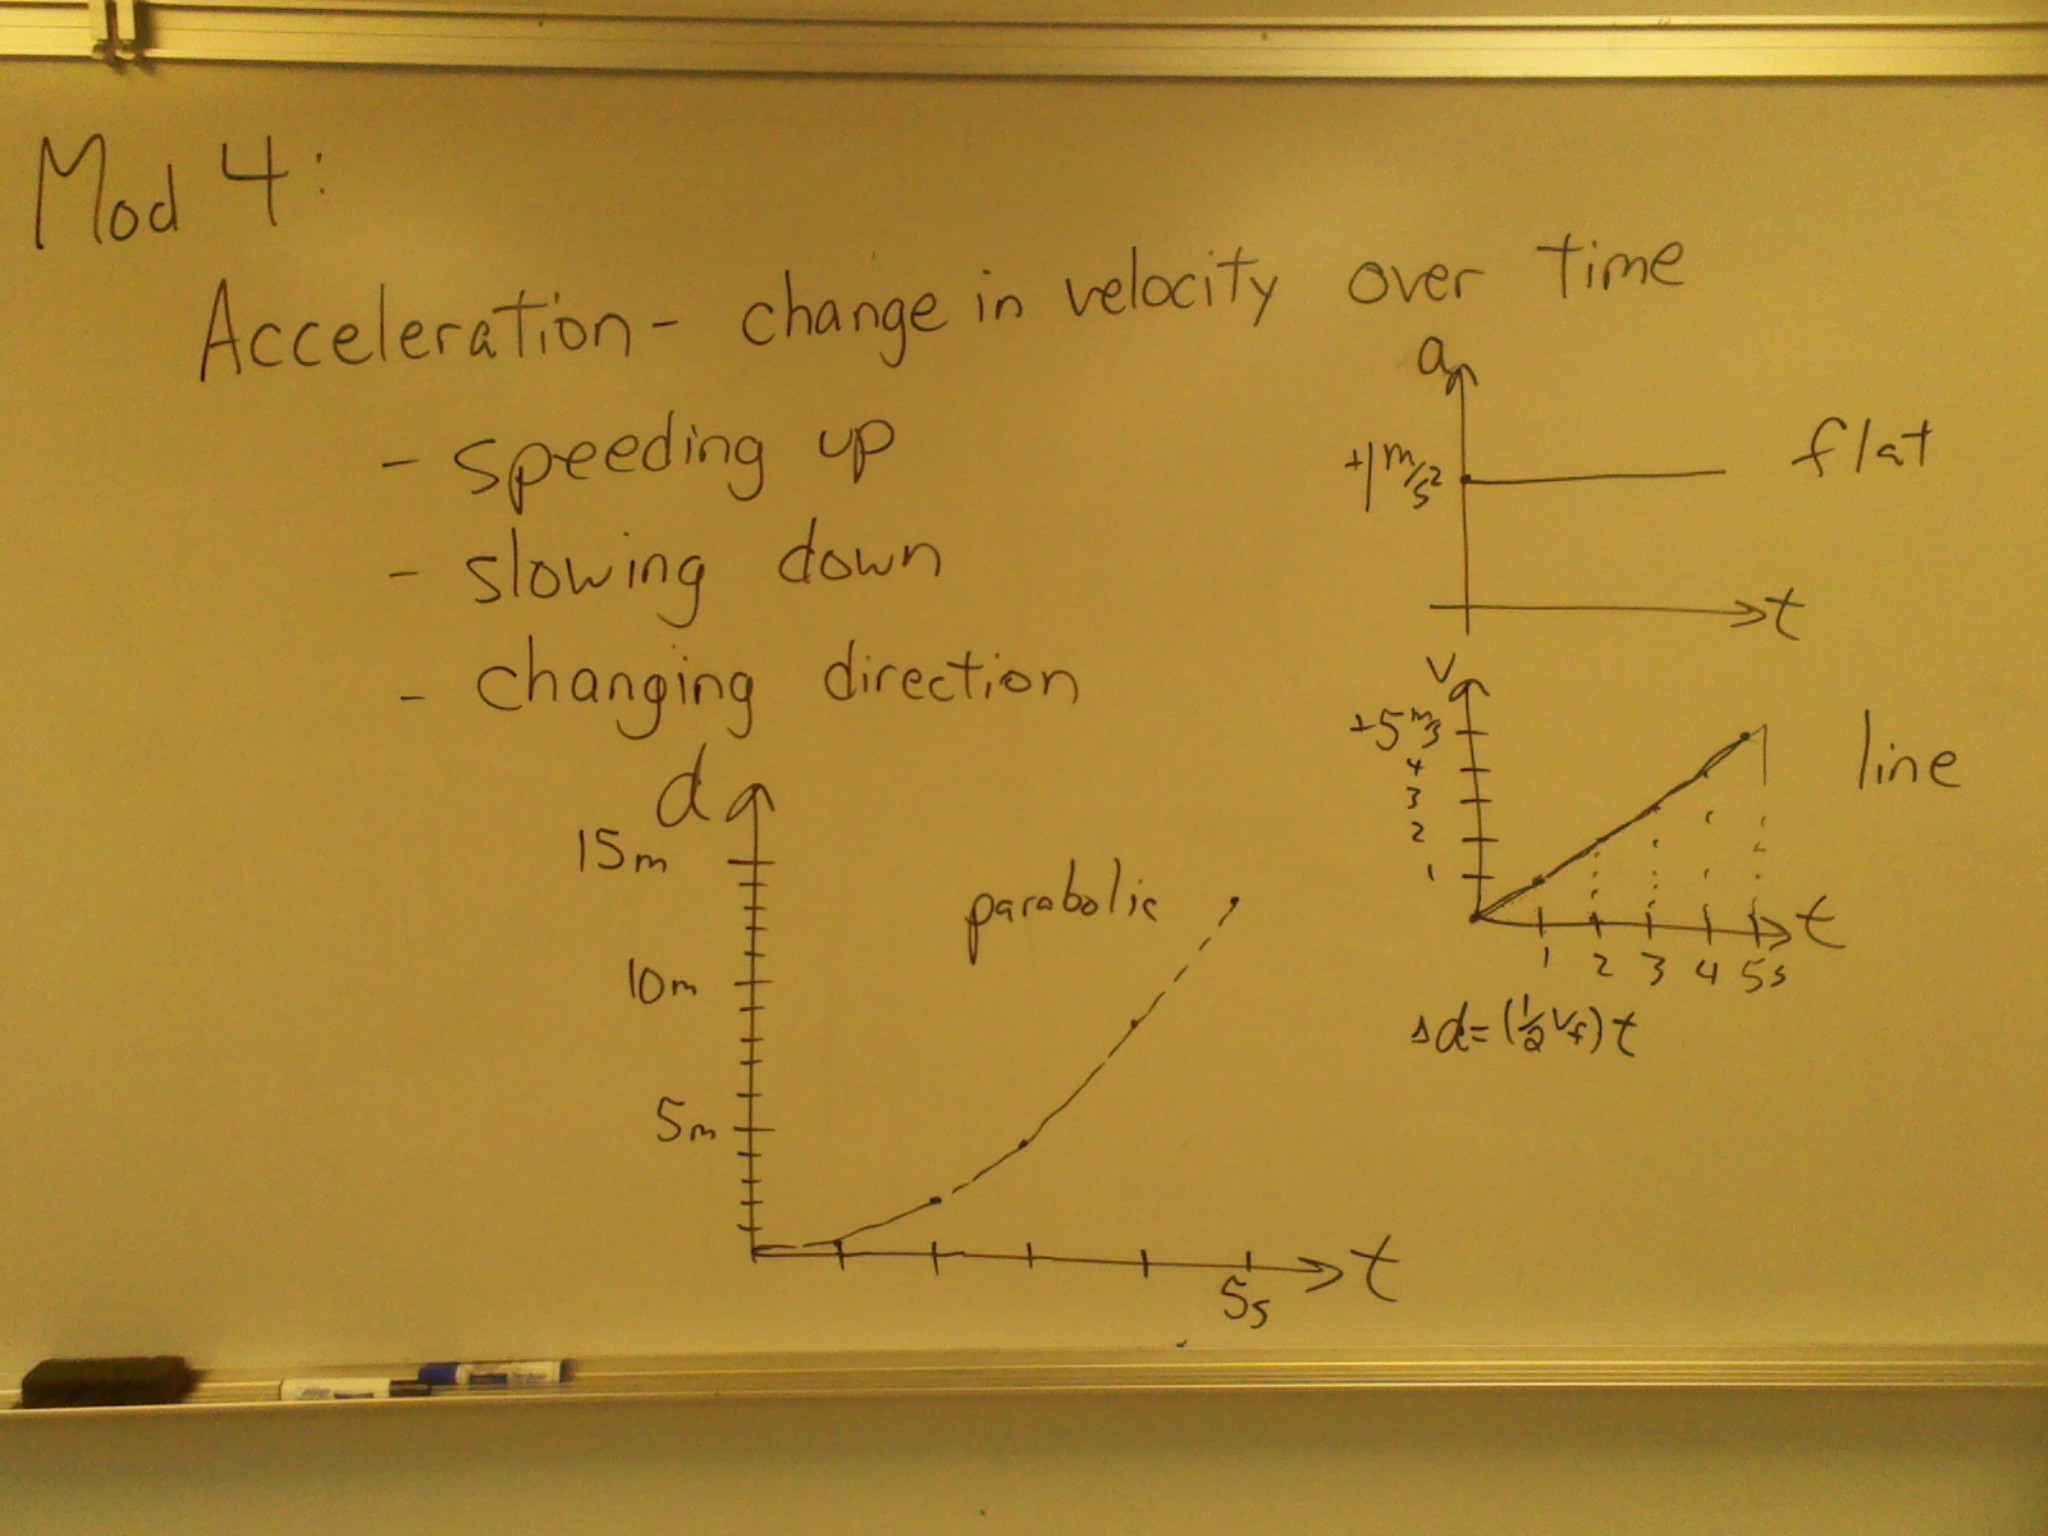 Mod 4:
Acceleration - change in velocity over time
- speeding up
- slowing down
- changing direction
a
+1 m/s²
flat
t
v
+5 m/s
4
3
2
1
line
t
1 2 3 4 5s
Δd = (½ vf) t
d
15m
parabolic
10m
5m
t
5s